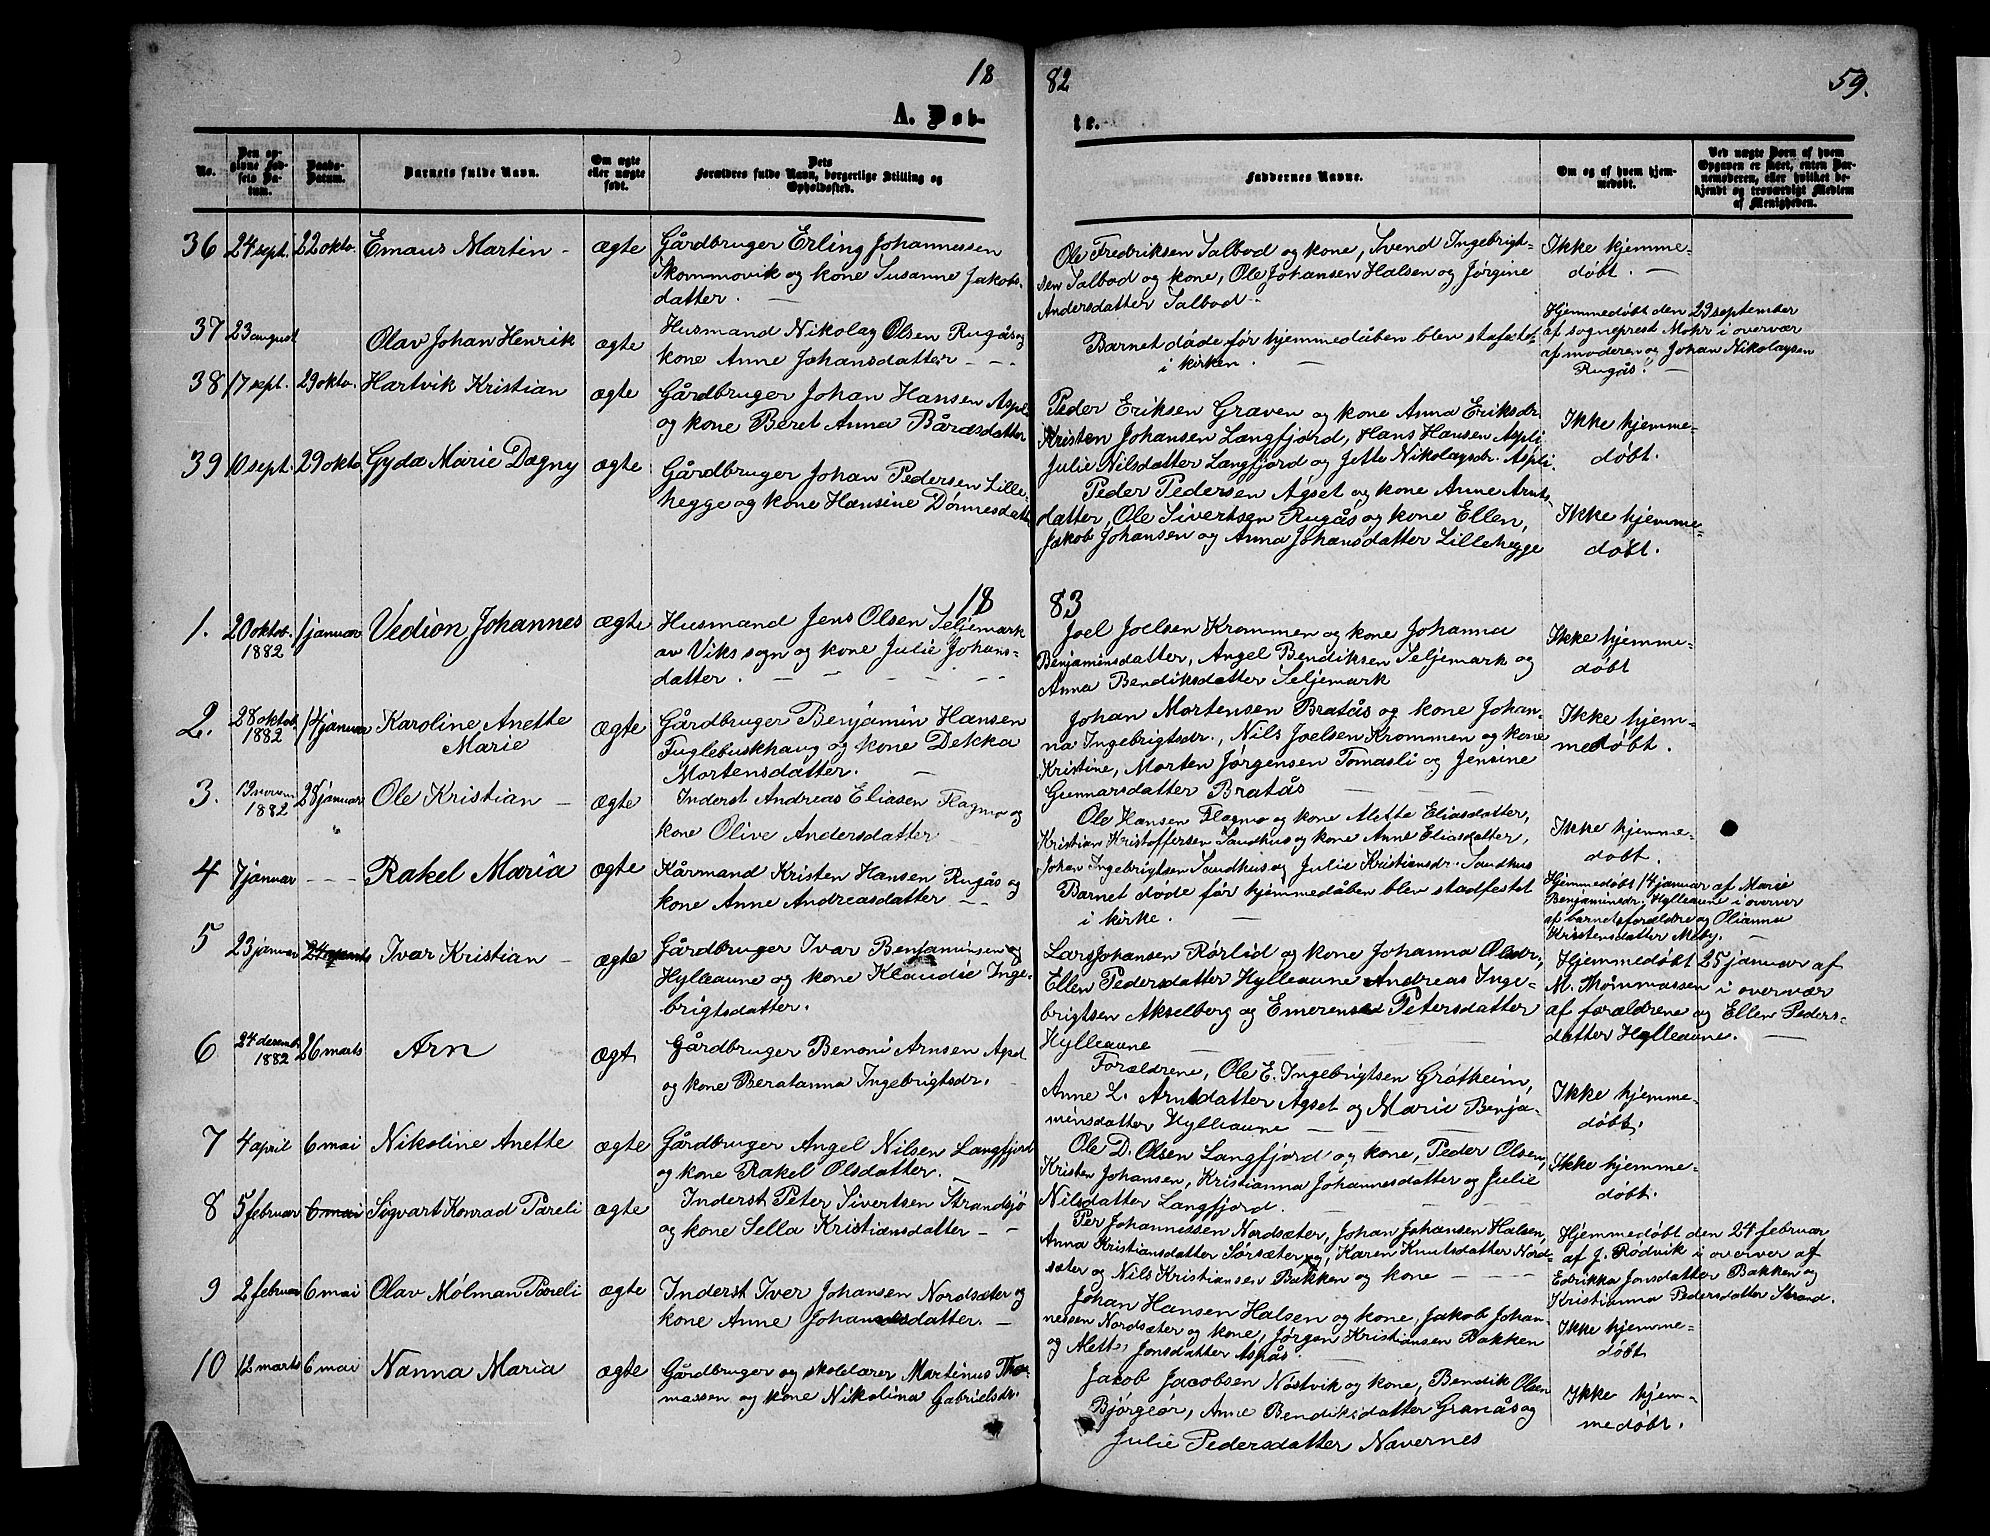 18 82 59.
A. Døb- te.
No. Den opgivne Fødsels Datum. Daabs-Datum. Barnets fulde Navn. Om ægte eller uægte født. Dets Forældres fulde Navn, borgerlige Stilling og Opholdssted. Faddernes Navne. Om og af hvem hjemmedøbt. Ved uægte Børn af hvem Opgaven er skeet, enten Barnemoderen, eller hvilket bekjendt og troværdigt Medlem af Menigheden.
36 24 sept. 22 oktb. Emaus Martin – ægte Gårdbruger Erling Johannessen
Skommovik og kone Susanne Jakobs-
datter. –
Ole Fredriksen Salbod og kone, Svend Ingebrigt-
sen Salbod og kone, Ole Johansen Halsen og Jørgine
Andersdatter Salbod –
Ikke hjemme-
døbt. –
37 23 august Olav Johan Henrik ægte Husmand Nikolay Olsen Rugås og
kone Anne Johansdatter – –
Barnet døde før hjemmedåben blev stafæstet
i kirken. –
Hjemmedøbt den 23 september
af sogneprest Mohr i overvær
af moderen og Johan Nikolaysen
Rugås. –
38 17 sept. 29 oktb. Hartvik Kristian ægte Gårdbruger Johan Hansen Aspli
og kone Beret Anna Bårdsdatter
Peder Eriksen Graven og kone Anna Eriksdr.
Kristen Johansen Langfjord, Hans Hansen Aspli
Julie Nilsdatter Langfjord og Jette Nikolaysdr. Aspli.
Ikke hjemme-
døbt.
39 10 sept. 29 oktb. Gyda Marie Dagny ægte Gårdbruger Johan Pedersen Lille-
hegge og kone Hansine Dønnesdatter
Peder Pedersen Agset og kone Anne Arnts-
datter, Ole Sivertsen Rugås og kone Ellen,
Jakob Johansen og Anna Johansdatter Lillehegge
Ikke hjemme-
døbt.
18 83
1. 20 oktob. 1882 1 januar Vedion Johannes ægte Husmand Jens Olsen Seljemark
av Viks sogn og kone Julie Johans-
datter. – – – – –
Joel Joelsen Krommen og kone Johanna
Benjaminsdatter, Angel Bendiksen Seljemark og
Anna Bendiksdatter Seljemark
Ikke hjemme-
døbt
2. 28 oktob 1882 14 januar Karoline Anette
Marie ægte Gårdbruger Benjamin Hansen
Fuglebuskhaug og kone Dekka
Mortensdatter. –
Johan Mortensen Bratås og kone Johan-
na Ingebrigtsdr., Nils Joelsen Krommen og kone
Kristine, Morten Jørgensen Tomasli og Jensine
Gunnarsdatter Bratås –
Ikke hjem-
medøbt.
3. 19 novem 1882 28 januar Ole Kristian – ægte Inderst Andreas Eliasen Flagmo og
kone Olive Andersdatter
Ole Hansen Flagmo og kone Mette Eliasdatter,
Kristian Kristoffersen Sandhus og kone Anne Eliasdatter,
Johan Ingebrigtsen Sandhus og Julie Kristiansdr. Sandhus
Ikke hjemme-
døbt.
4 7 januar – – – Rakel Maria ægte Kårmand Kristen Hansen Rugås og
kone Anne Andreasdatter – –
Barnet døde før hjemmedåben blev stadfestet
i kirke. –
Hjemmedøbt 14 januar af Marie
Benjaminsdr. Hylleaune i overver
af barnets forældre og Olianna
Kristensdatter Moby. –
5 23 januar 24 marts Ivar Kristian – ægte Gårdbruger Ivar Benjaminsen
Hylleaune og kone Klaudie Inge-
brigtsdatter.
Lars Johansen Rørlid og kone Johanna Olsdr.,
Ellen Pedersdatter Hylleaune Andreas Inge-
brigtsen Akselberg og Emerense Petersdatter
Hylleaune – – –
Hjemmedøbt 25 januar af
M. Thommassen i overvær
af forældrene og Ellen Peders-
datter Hylleaune. –
6 24 desemb 1882 26 marts Arn ægt Gårdbruger Benoni Arnsen Agset
og kone Beratanna Ingebrigtsdr.
Forældrene, Ole E. Ingebrigtsen Grøtheim,
Anne L. Arntsdatter Agset og Marie Benja-
minsdatter Hylleaune – – –
Ikke hjemme-
døbt.
7 4 april 6 mai Nikoline Anette ægte Gårdbruger Angel Nilsen Langfjord
og kone Rakel Olsdatter.
Ole D. Olsen Langfjord og kone, Peder Olsen,
Kristen Johansen, Kristianna Johannesdatter og Julie
Nilsdatter Langfjord. – – –
Ikke hjemme-
døbt.
8 5 februar 6 mai Sigvart Konrad Pareli ægte Inderst Peter Sivertsen Strandsjø
og kone Sella Kristiansdatter – –
Per Johannessen Nordsæter, Johan Johansen Halsen,
Anna Kristiansdatter Sørsæter og, Karen Knutsdatter Nord-
sæter og Nils Kristiansen Bakken og kone – – –
Hjemmedøbt den 24 februar
af J. Rødvik i overver af
Edrikka Jonsdatter Bakken og
Kristianna Pedersdatter Strand.
9 2 februar 6 mai Olav Mølman Pareli ægte Inderst Iver Johansen Nordsæter og
kone Anne Johannesdatter. –
Johan Hansen Halsen og kone, Jakob Johan-
nessen Nordsæter og kone, Jørgen Kristiansen Bakken
og Alette Jonsdatter Aspås
Ikke hjemme-
døbt
10 12 marts 6 mai Nanna Maria ægte Gårdbruger og skolelærer Martinus Tho-
massen og kone Nikolina Gabrielsdr.
Jacob Jacobsen Nøstvik og kone, Bendik Olsen
Bjørgeør, Anne Bendiksdatter Granås og
Julie Pedersdatter Navernes
Ikke hjem-
medøbt.